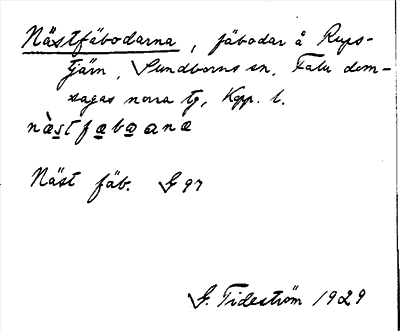 Nästfäbodarna, fäbodar å Rups-
tjärn, Sundborns sn, Falu dom-
sagas norra tg, Kopp. l.
nàstfæbɷana
Näst fäb. G 97
G. Tideström 1929